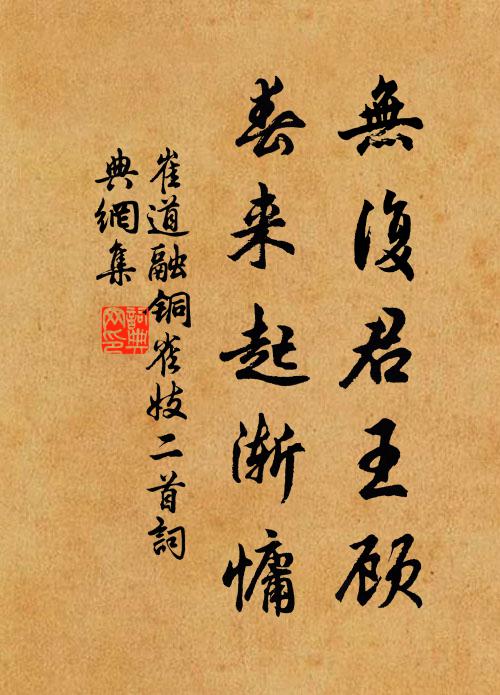 無復君王顾
春来起渐慵
崔道融铜雀妓二首詞
典網集
詞典網印